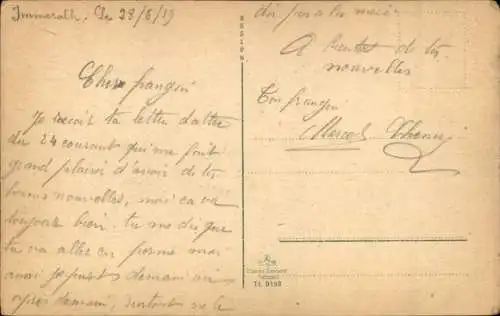 Immerath. Le 28/6/19
Cher frangin
Je reçoit ta lettre dater
du 24 courant qui me fait
grand plaisir d'avoir de tes
bonnes nouvelles, moi ça va
toujours bien. tu me dis que
tu va aller en perme moi
aussi je part demain ou
après demain, surtout ne le
dis pas a la mère
A bientot de tes
nouvelles
Ton frangin
Marcel
Tr. 9193